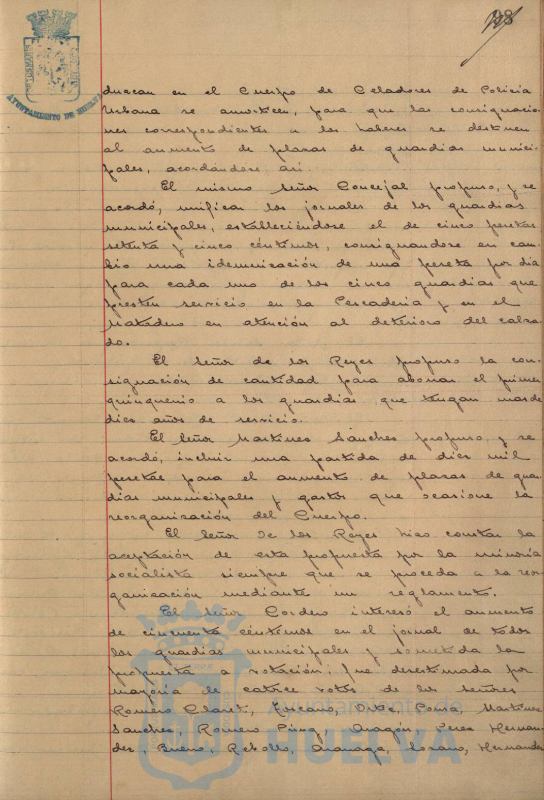 128
AYUNTAMIENTO DE HUELVA
duzcan en el Cuerpo de Celadores de Policía
Urbana se amorticen, para que las consignacio-
nes correspondientes a los haberes se destinen
al aumento de plazas de guardias munici-
pales, acordándose así.
El mismo señor Concejal propuso, y se
acordó, unificar los jornales de los guardias
municipales, estableciéndose el de cinco pesetas
setenta y cinco céntimos, consignandose en cam-
bio una idemnización de una peseta por día
para cada uno de los cinco guardias que
presten servicio en la Pescadería y en el
Matadero en atención al deterioro del calza-
do.
El señor de los Reyes propuso la con-
signación de cantidad para abonar el primer
quinquenio a los guardias que tengan mas de
diez años de servicio.
El señor Martinez Sanchez propuso, y se
acordó, incluir una partida de diez mil
pesetas para el aumento de plazas de guar-
dias municipales y gastos que ocasione la
reorganización del Cuerpo.
El señor de los Reyes hizo constar la
aceptación de esta propuesta por la minoría
socialista siempre que se proceda a la reor-
ganización mediante un reglamento.
El señor Cordero interesó el aumento
de cincuenta céntimos en el jornal de todos
los guardias municipales y sometida la
propuesta a votación, fue desestimada por
mayoría de catorce votos de los señores
Romero Claret, Toscano, Ortiz, Ponsa, Martinez
Sanchez, Romero Aragón, Perez Hernan-
dez, Bueno, Rebollo, Lozano, Hernandez
Ayuntamiento
HUELVA